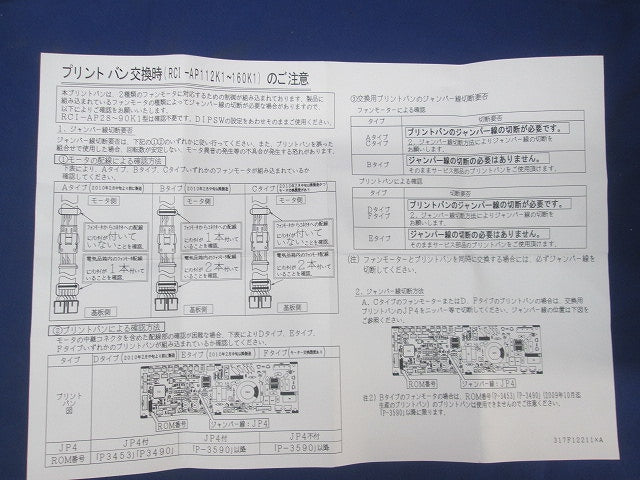 プリントバン交換時(RCI-AP112K1~160K1)のご注意
本プリントバンは、2種類のファンモータに対応するための制御が組み込まれております。製品に
組み込まれているファンモータの種類によってジャンパー線の切断が必要な場合がありますので、
以下によりご確認をお願いいたします。
RCI-AP28~90K1型は確認不要です。DIPSWの設定をあわせそのままご使用ください。
1、ジャンパー線切断要否
ジャンパー線切断要否は、下記の①②のいずれかに従い行ってください。また、プリントバンを誤った
組合せで使用した場合、回転数が安定しない、モータ異音の発生等の不具合が発生する恐れがあります。
①モータの配線による確認方法
下表により、Aタイプ、Bタイプ、Cタイプいずれかのファンモータが組み込まれているか
確認してください。
Aタイプ
Bタイプ
Cタイプ
モータ側
モータ側
モータ側
付いて
いない
ことを確認
1本付いて
いることを確認
2本付いて
いることを確認
1本付いて
いることを確認
2本付いて
いることを確認
2本付いて
いることを確認
基板側
基板側
基板側
②プリントバンによる確認方法
モータの中継コネクタを含めた配線部の確認が困難な場合、下表によりDタイプ、Eタイプ、
Fタイプいずれかのプリントバンが組み込まれているかご確認ください。
タイプ
Dタイプ
Eタイプ
Fタイプ
プリント
バン
図
ROM番号
ジャンパー線:JP4
JP4
JP4付
JP4付
JP4不付
ROM番号
「P3453」「P3490」
「P-3590」以降
「P-3590」以降
③交換用プリントバンのジャンパー線切断要否
ファンモーターによる確認
タイプ
切断要否
Aタイプ
Cタイプ
プリントバンのジャンパー線の切断が必要です。
2、ジャンパー線切断方法によりジャンパー線の切断を
お願いします。
Bタイプ
ジャンパー線の切断の必要はありません。
そのままサービス部品のプリントバンをご使用頂けます。
プリントバンによる確認
タイプ
切断要否
Dタイプ
Fタイプ
プリントバンのジャンパー線の切断が必要です。
2、ジャンパー線切断方法によりジャンパー線の切断を
お願いします。
Eタイプ
ジャンパー線の切断の必要はありません。
そのままサービス部品のプリントバンをご使用頂けます。
(注) ファンモーターとプリントバンを同時に交換する場合には、必ずジャンパー線を
切断してください。
2、ジャンパー線切断方法
A、CタイプのファンモーターまたはD、Fタイプのプリントバンの場合は、交換用
プリントバンのJP4をニッパー等で切断してください。ジャンパー線の位置は下図を
ご参照ください。
ROM番号
ジャンパー線:JP4
注2) Bタイプのファンモータの場合は、ROM番号「P-3453」「P-3490」(2009年10月迄
生産のプリントバン)のプリントバンは使用できませんのでご注意ください。
「P-3590」以降に限ります。
317F12211×A